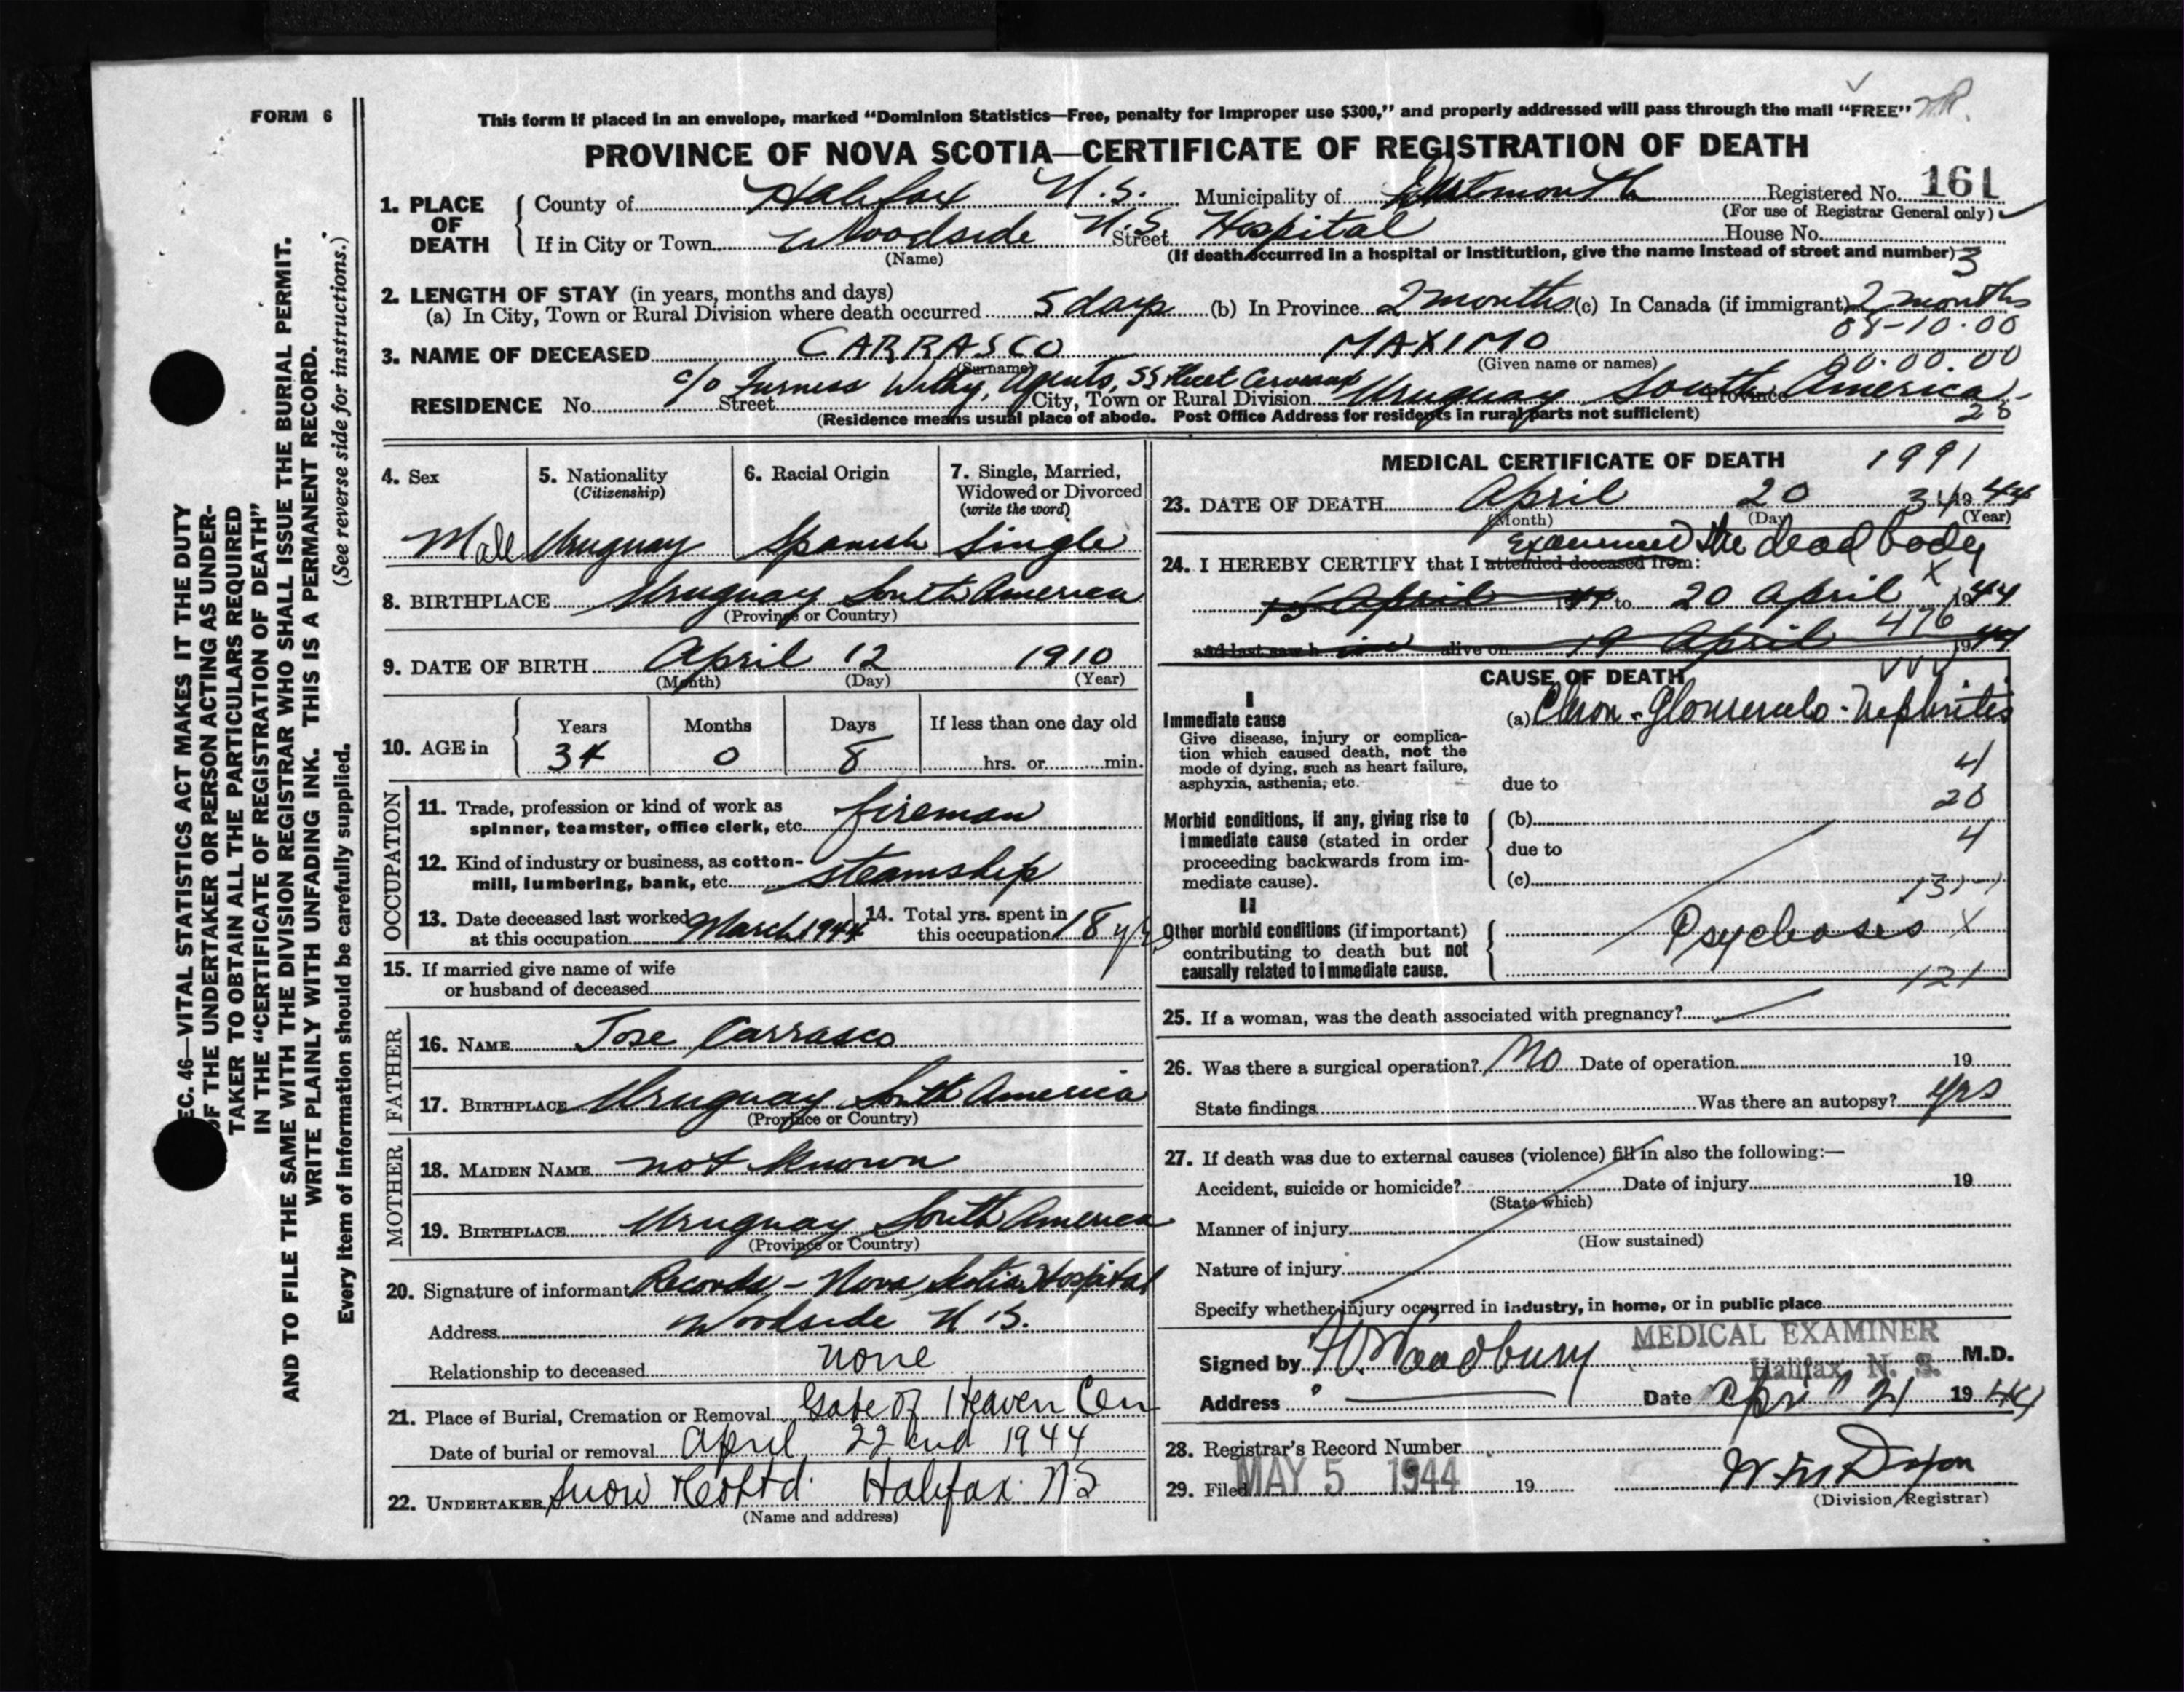 FORM 6
This form if placed in an envelope, marked "Dominion Statistics—Free, penalty for improper use $300," and properly addressed will pass through the mail "FREE"
PROVINCE OF NOVA SCOTIA—CERTIFICATE OF REGISTRATION OF DEATH
1. PLACE OF DEATH
County of Halifax N.S. Municipality of Dartmouth Registered No. 161
(For use of Registrar General only)
If in City or Town Woodside N.S. Street Hospital House No.
(Name) (If death occurred in a hospital or institution, give the name instead of street and number) 3
2. LENGTH OF STAY (in years, months and days)
(a) In City, Town or Rural Division where death occurred 5 days (b) In Province 2 months (c) In Canada (if immigrant) 2 months
08-10.00
3. NAME OF DECEASED CARRASCO MAXIMO
(Surname) (Given name or names) 00.00.00
c/o Furness Withy, Agents, SS
RESIDENCE No. Street City, Town or Rural Division Uruguay South America Province
(Residence means usual place of abode. Post Office Address for residents in rural parts not sufficient) 28
4. Sex Male
5. Nationality (Citizenship) Uruguay
6. Racial Origin Spanish
7. Single, Married, Widowed or Divorced (write the word) Single
8. BIRTHPLACE Uruguay South America
(Province or Country)
9. DATE OF BIRTH April 12 1910
(Month) (Day) (Year)
10. AGE in Years Months Days If less than one day old
34 0 8 hrs. or min.
OCCUPATION
11. Trade, profession or kind of work as spinner, teamster, office clerk, etc. fireman
12. Kind of industry or business, as cotton-mill, lumbering, bank, etc. steamship
13. Date deceased last worked at this occupation March 1944
14. Total yrs. spent in this occupation 18 yrs
15. If married give name of wife or husband of deceased
FATHER
16. NAME Jose Carrasco
17. BIRTHPLACE Uruguay South America
(Province or Country)
MOTHER
18. MAIDEN NAME not known
19. BIRTHPLACE Uruguay South America
(Province or Country)
20. Signature of informant Records - Nova Scotia Hospital
Address Woodside N.S.
Relationship to deceased none
21. Place of Burial, Cremation or Removal Gate of Heaven Cem
Date of burial or removal April 22 1944
22. UNDERTAKER Snow & Co Ltd Halifax NS
(Name and address)
MEDICAL CERTIFICATE OF DEATH 1991
23. DATE OF DEATH April 20 34 1944
(Month) (Day) (Year)
Examined the dead body
24. I HEREBY CERTIFY that I attended deceased from:
15 April 1944 to 20 April 1944
X
476
and last saw h im alive on 19 April 1944
CAUSE OF DEATH
I
Immediate cause
Give disease, injury or complication which caused death, not the mode of dying, such as heart failure, asphyxia, asthenia, etc.
(a) Chron-Glomerulo-Nephritis
4
due to
Morbid conditions, if any, giving rise to immediate cause (stated in order proceeding backwards from immediate cause).
(b)
due to 4
(c)
II
Other morbid conditions (if important) contributing to death but not causally related to immediate cause.
Psychoses X
121
25. If a woman, was the death associated with pregnancy?
26. Was there a surgical operation? No Date of operation 19
State findings Was there an autopsy? yes
27. If death was due to external causes (violence) fill in also the following:—
Accident, suicide or homicide? Date of injury 19
(State which)
Manner of injury
(How sustained)
Nature of injury
Specify whether injury occurred in industry, in home, or in public place
MEDICAL EXAMINER
Halifax, N. S.
Signed by Woodbury M.D.
Address Date April 21 1944
28. Registrar's Record Number
29. Filed MAY 5 1944 19
(Division Registrar)
SEC. 46—VITAL STATISTICS ACT MAKES IT THE DUTY
OF THE UNDERTAKER OR PERSON ACTING AS UNDER-
TAKER TO OBTAIN ALL THE PARTICULARS REQUIRED
IN THE "CERTIFICATE OF REGISTRATION OF DEATH"
AND TO FILE THE SAME WITH THE DIVISION REGISTRAR WHO SHALL ISSUE THE BURIAL PERMIT.
WRITE PLAINLY WITH UNFADING INK. THIS IS A PERMANENT RECORD.
Every item of information should be carefully supplied. (See reverse side for instructions.)